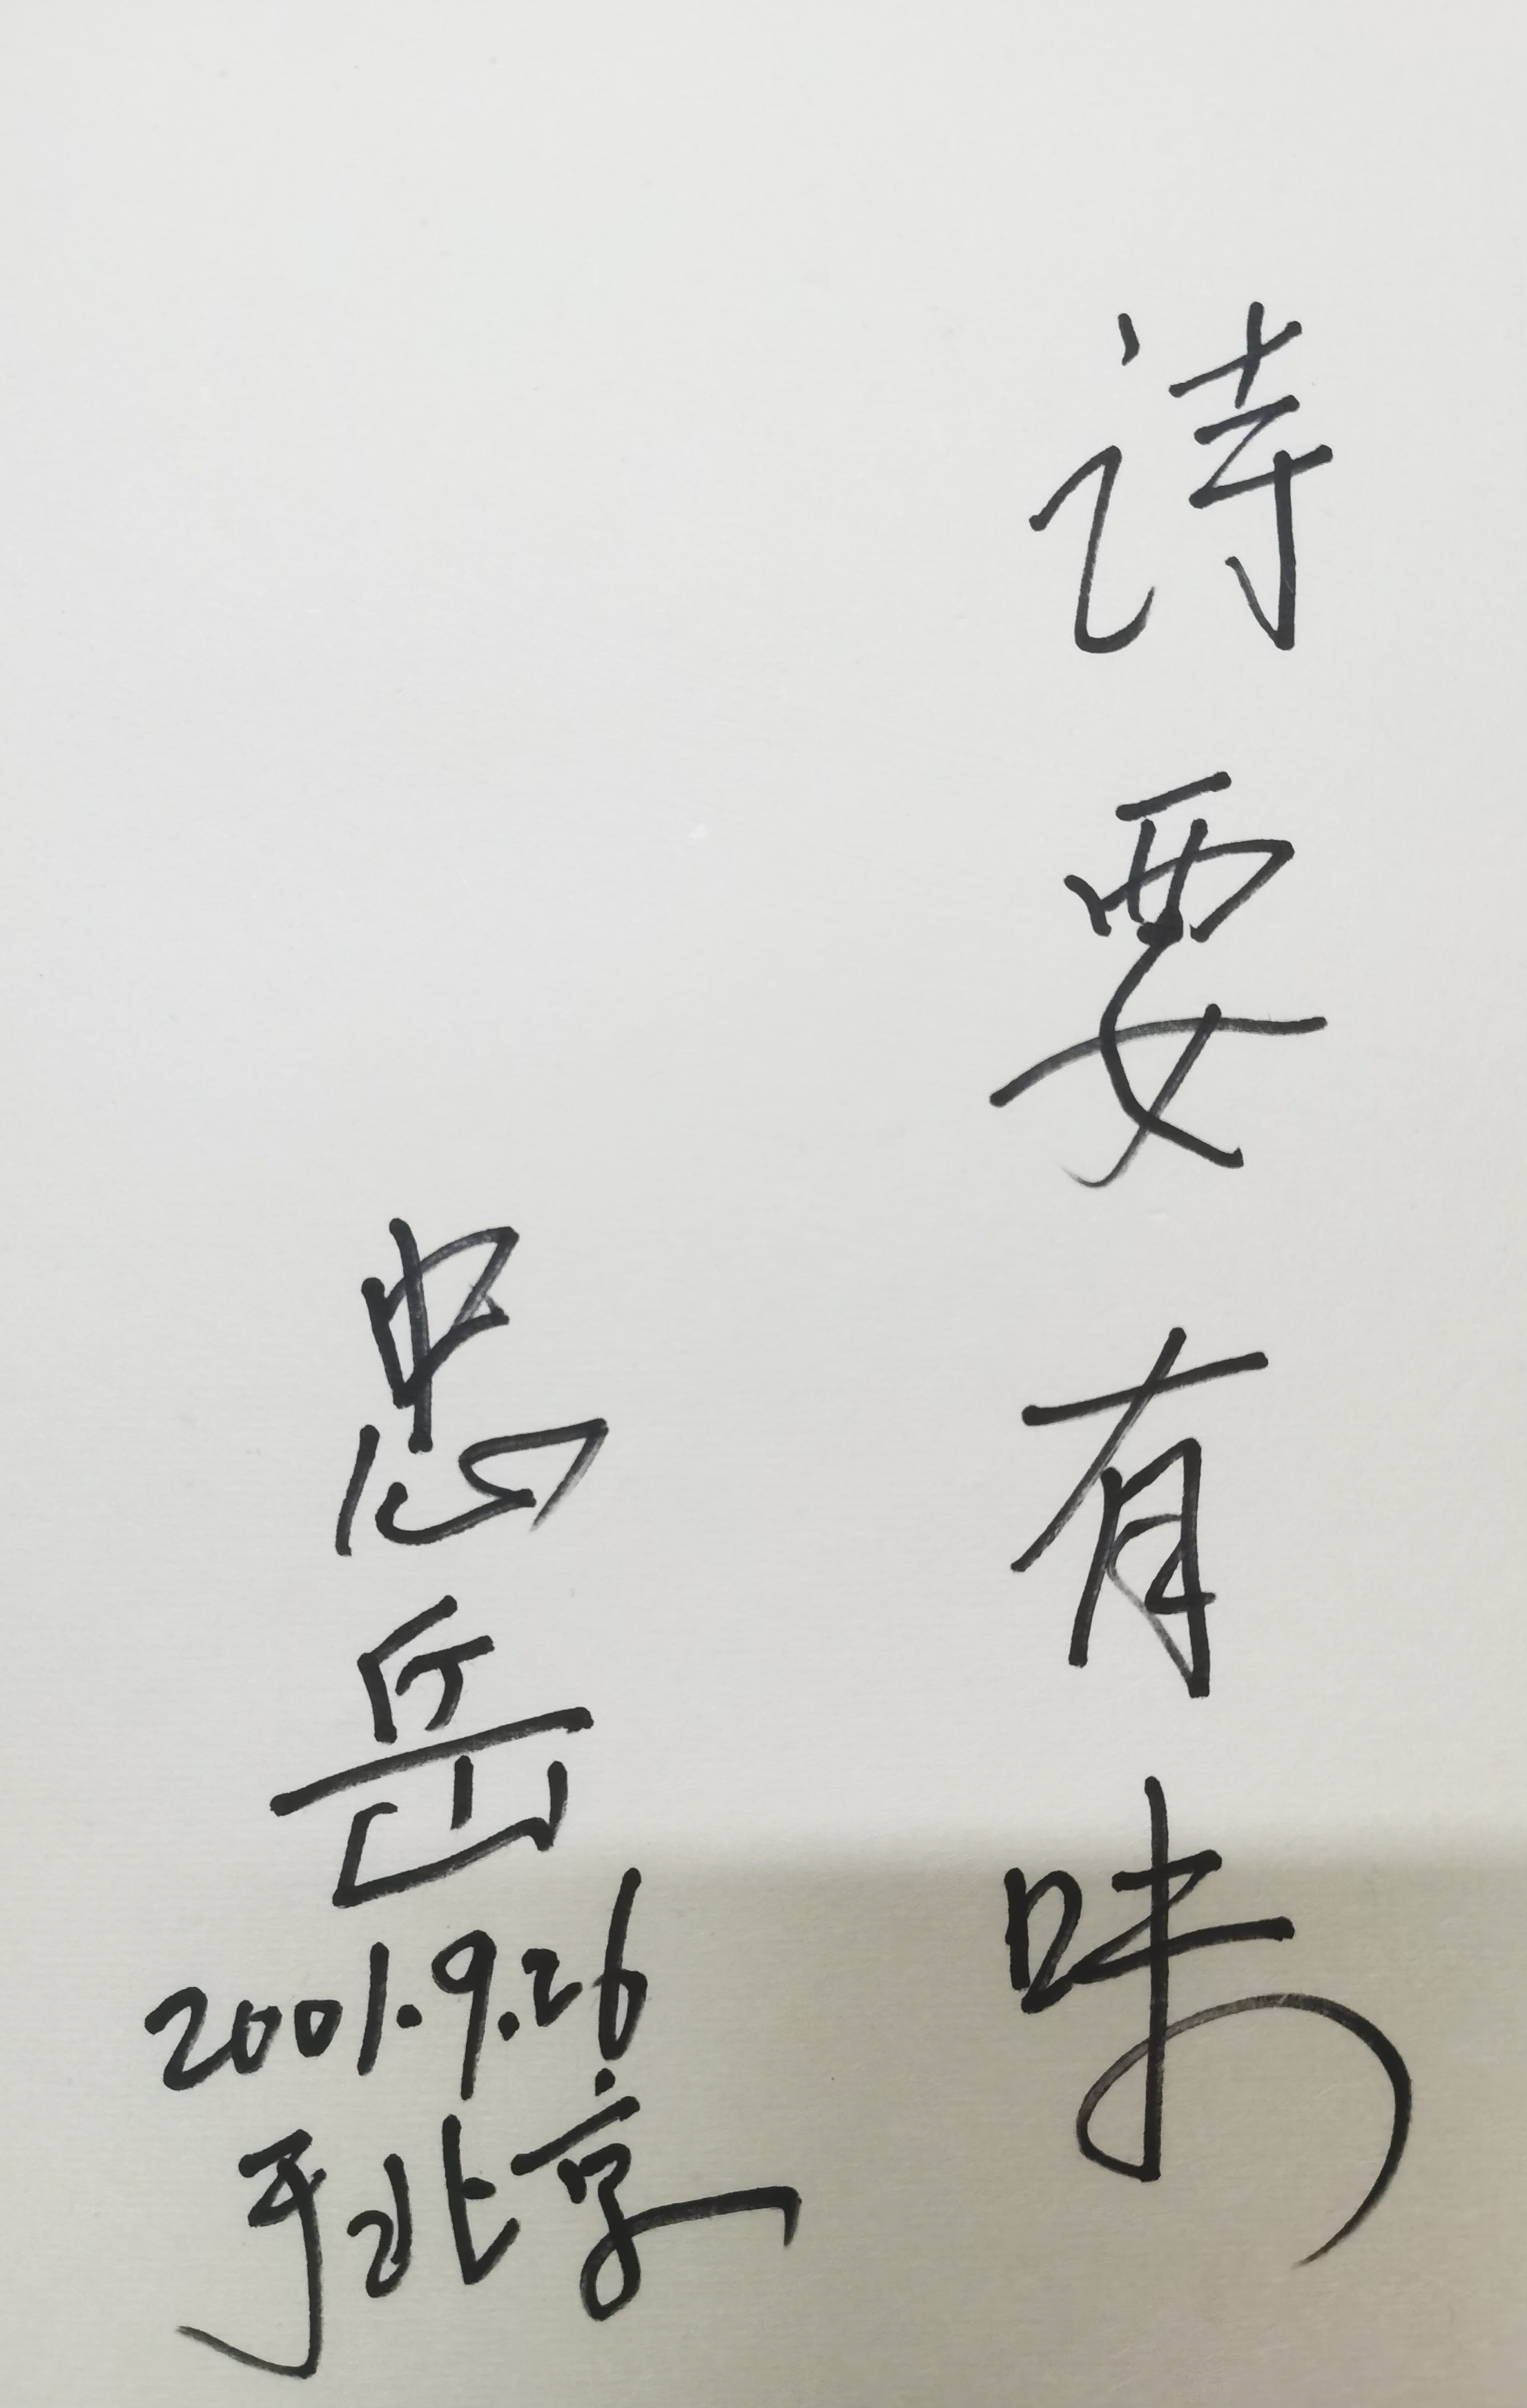 诗要有味
忠岳
2001.9.26
于北京